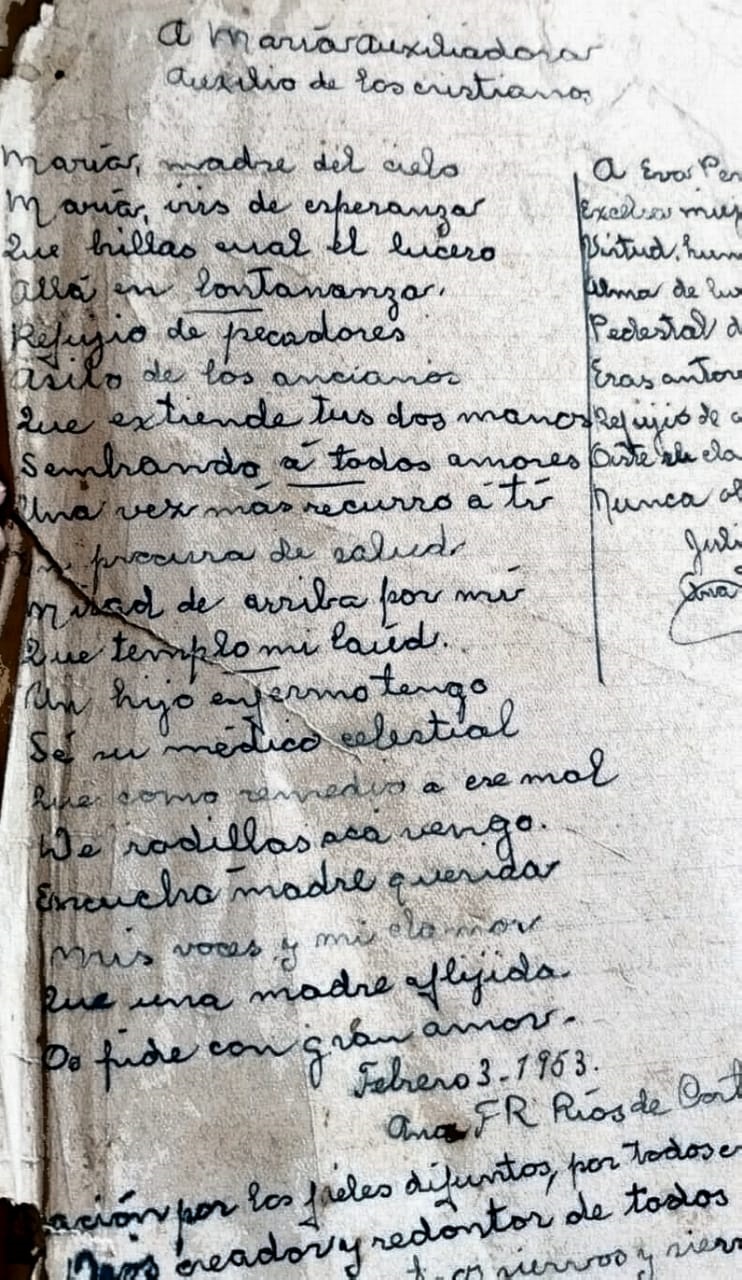 A María Auxiliadora
Auxilio de los cristianos
María, madre del cielo
María, iris de esperanza
Que brillas cual el lucero
Allá en lontananza.
Refujio de pecadores
Asilo de los ancianos
Que extiende tus dos manos
Sembrando á todos amores
Una vez más recurro á tí
procura de salud
Mirad de arriba por mí
Que templo mi laúd.
Un hijo enfermo tengo
Sé su médico celestial
Que como remedio a ese mal
De rodillas acá vengo.
Escucha madre querida
Mis voces y mi clamor
Que una madre aflijida
Os pide con gran amor.
Febrero 3-1953.
Ana FR Ríos de Cort
A Eva Per
Excelsa muj
Virtud, hum
Alma de luz
Pedestal d
Eras antor
Refujio de a
Oiste el cla
Nunca ol
Juli
Ana
ación por los fieles difuntos, por todos e
Dios creador y redontor de todos
siervos y sierv